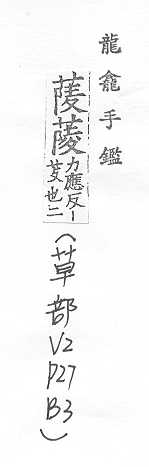 龍龕手鑑
力應反丨
芰也二
(草部 V2 P27 B3)